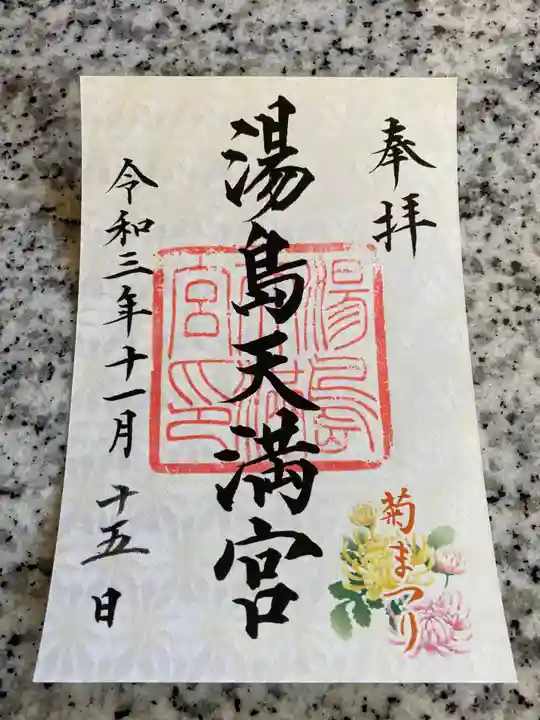 奉拝
湯島天満宮
湯島天満宮印
菊まつり
令和三年十一月十五日